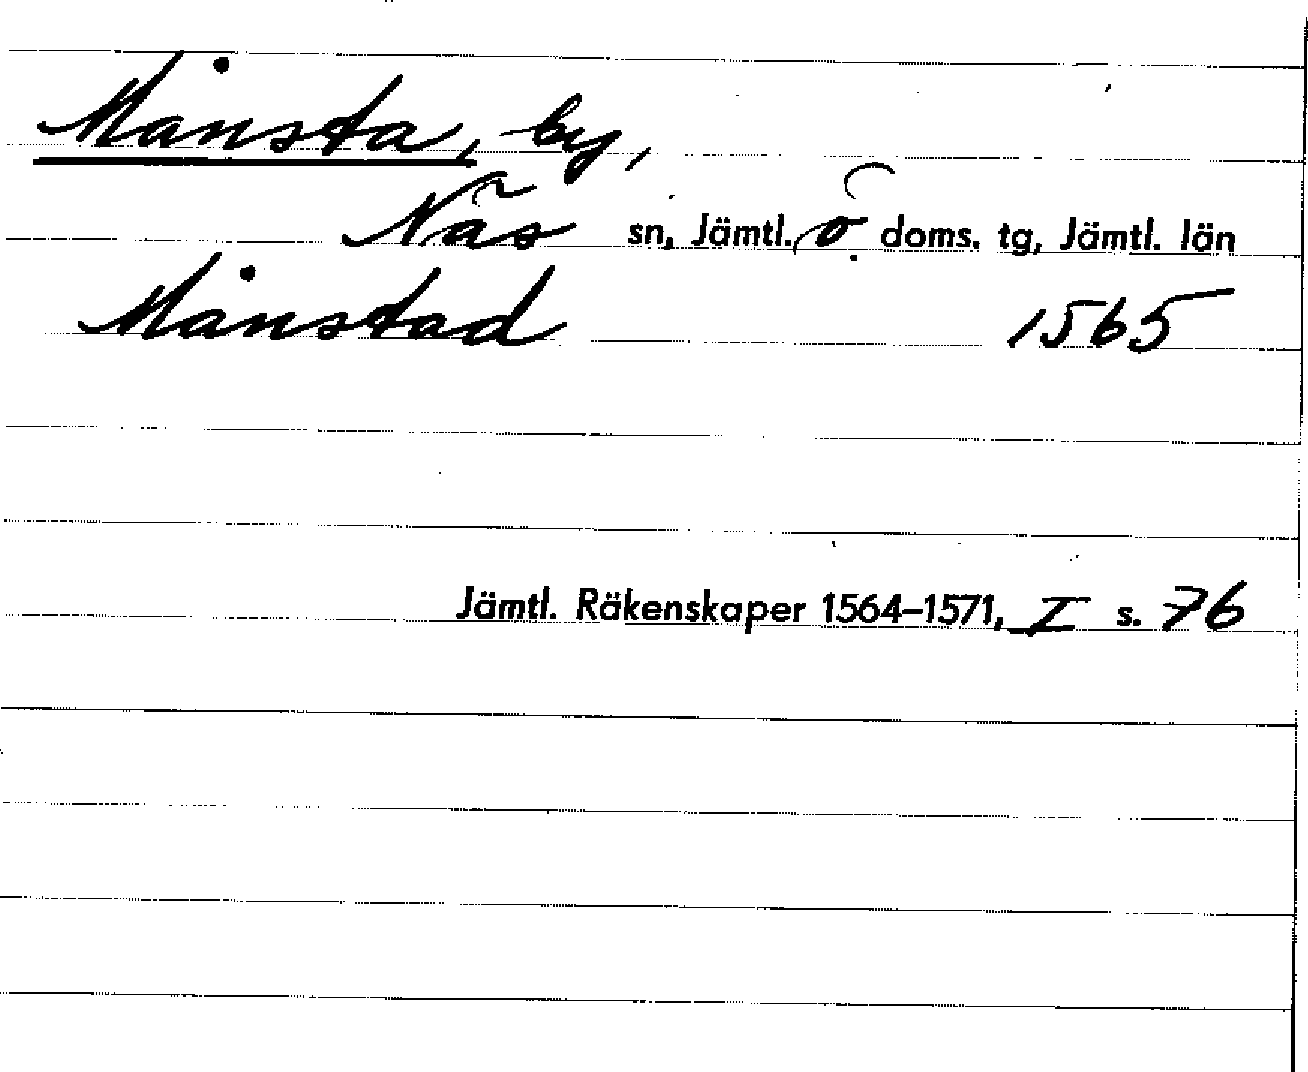 Månsta, by,
Näs sn, Jämtl. ö. doms. tg, Jämtl. län
Månstad 1565
Jämtl. Räkenskaper 1564–1571, I s. 76